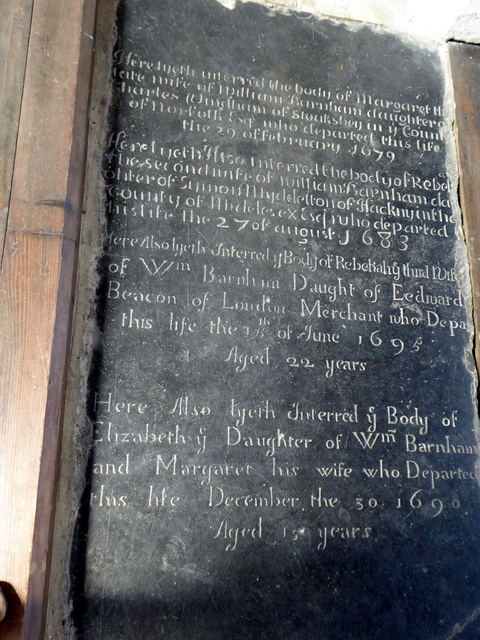 Here lyeth interred the body of Margaret th
late wife of William Barnham daughter o
Charles Windham of Stocksby in ye Coun
of Norfolk Esqr who departed this life
the 29 of February 1679
Here lyeth Also Interred the body of Rebek
the second wife of William Barnham da
ghter of Simon Myddelelton of Hackny in the
County of Middelesex Esqr who departed
this life the 27 of august 1683
Here Also lyeth Interred ye Body of Rebekah ye third Wife
of Wm Barnham Daught of Eedward
Beacon of London Merchant who Depa
this life the th of June 1695
Aged 22 years
Here Also lyeth Interred ye Body of
Elizabeth ye Daughter of Wm Barnham
and Margaret his wife who Departed
this life December the 30 1690
Aged years